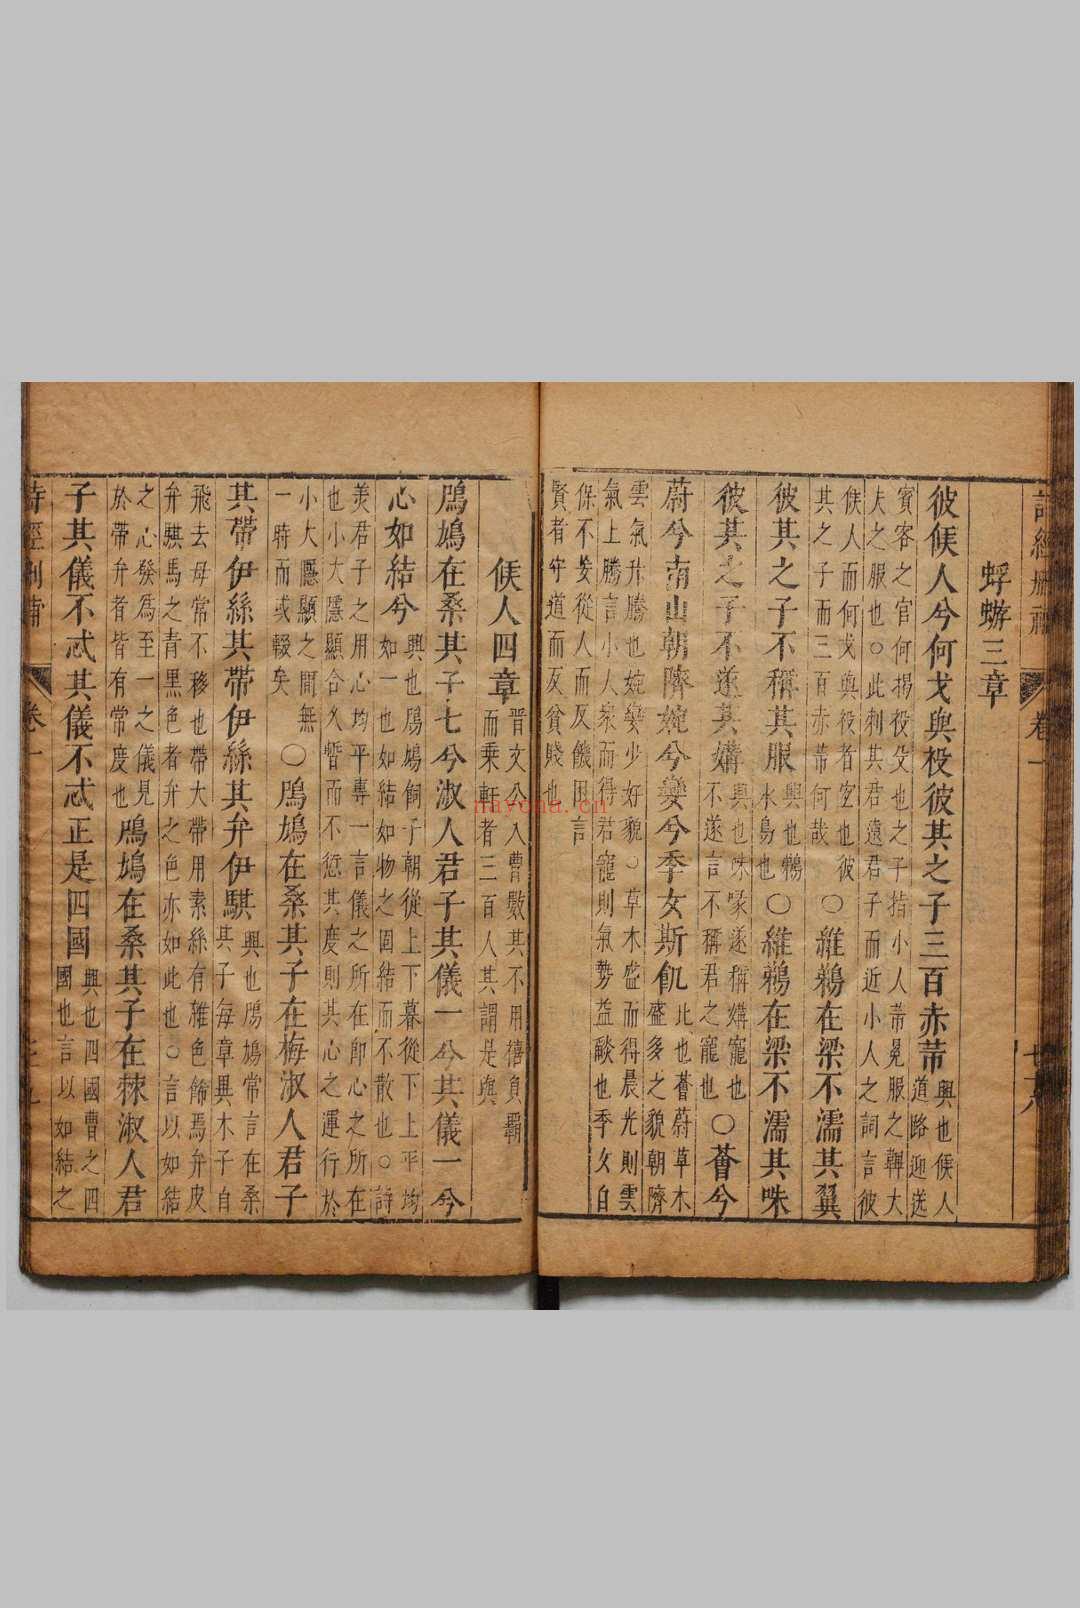 卷一
蜉蝣三章
彼候人兮何戈與祋彼其之子三百赤芾
興也候人
道路迎送
賓客之官何揭祋殳也之子指小人芾冕服之韠大
夫之服也○此刺其君遠君子而近小人之詞言彼
候人而何戈與祋者宜也彼
其之子而三百赤芾何哉
○維鵜在梁不濡其翼
彼其之子不稱其服
興也鵜
水鳥也
○維鵜在梁不濡其咮
彼其之子不遂其媾
興也咮喙遂稱媾寵也
不遂言不稱君之寵也
○薈兮
蔚兮南山朝隮婉兮孌兮季女斯飢
比也薈蔚草木
盛多之貌朝隮
雲氣升騰也婉孌少好貌○草木盛而得晨光則雲
氣上騰言小人衆而得君寵則氣勢益歊也季女自
保不妄從人而反饑困言
賢者守道而反貧賤也
候人四章
晉文公入曹數其不用僖負羈
而乘軒者三百人其謂是與
鳲鳩在桑其子七兮淑人君子其儀一兮其儀一兮
心如結兮
興也鳲鳩飼子朝從上下暮從下上平均
如一也如結如物之固結而不散也○詩
美君子之用心均平專一言儀之所在即心之所在
也小大隱顯合久暫而不愆其度則其心之運行於
小大隱顯之間無
一時而或輟矣
○鳲鳩在桑其子在梅淑人君子
其帶伊絲其帶伊絲其弁伊騏
興也鳲鳩常言在桑
其子每章異木子自
飛去母常不移也帶大帶用素絲有雜色飾焉弁皮
弁騏馬之青黑色者弁之色亦如此也○言以如結
之心發爲至一之儀見
於帶弁者皆有常度也
鳲鳩在桑其子在棘淑人君
子其儀不忒其儀不忒正是四國
興也四國曹之四
國也言以如結之
卷一
nayona.cn